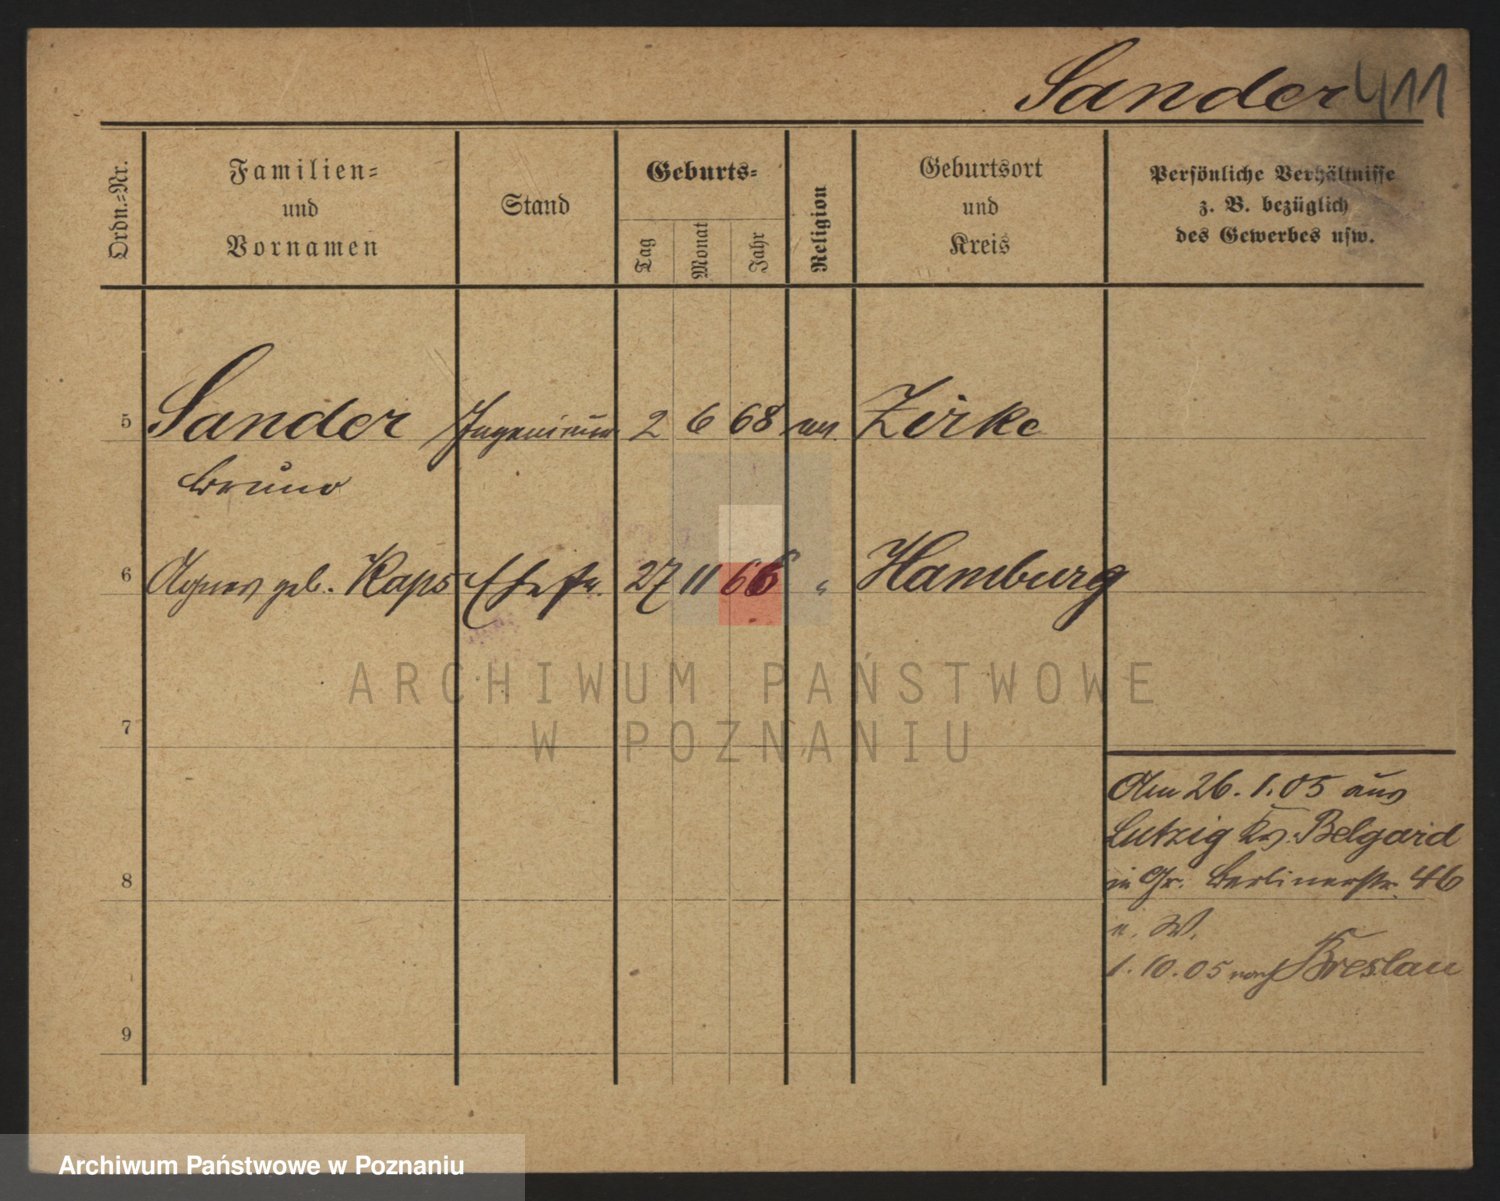 Sander 411
Ordn.-Nr.
Familien-
und
Vornamen
Stand
Geburts-
Tag
Monat
Jahr
Religion
Geburtsort
und
Kreis
Persönliche Verhältnisse
z. B. bezüglich
des Gewerbes usw.
5 Sander Ingenieur 2 6 68 Zirke
Bruno
6 Agnes geb. Kaps Ehefr. 27 11 66 " Hamburg
ARCHIWUM PAŃSTWOWE
W POZNANIU
7
Am 26.1.05 aus
Lutzig Krs. Belgard
in Gr. Berlinerstr. 46
8
u. W.
1.10.05 nach Breslau
9
Archiwum Państwowe w Poznaniu